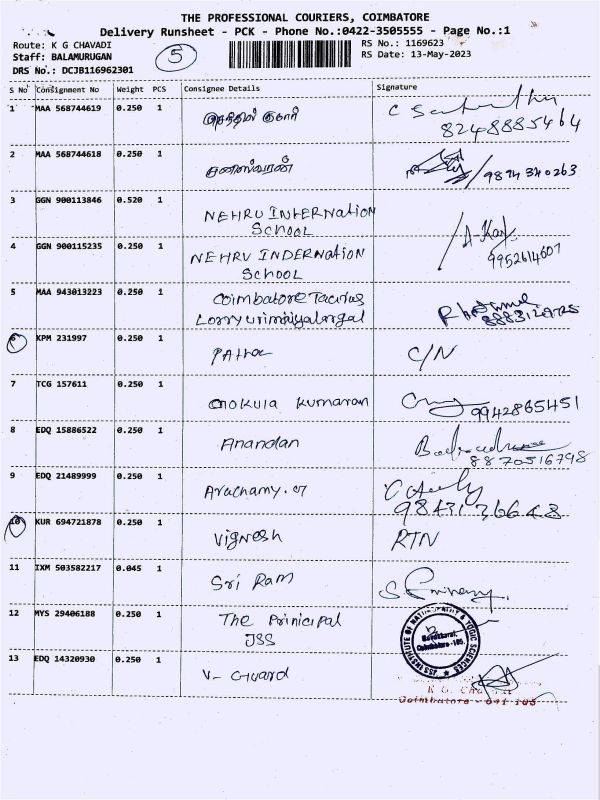 THE PROFESSIONAL COURIERS, COIMBATORE
Delivery Runsheet - PCK - Phone No.:0422-3505555 - Page No.:1
Route: K G CHAVADI
Staff: BALAMURUGAN
DRS No.: DCJB116962301
5
RS No.: 1169623
RS Date: 13-May-2023
S No Consignment No Weight PCS Consignee Details Signature
1 MAA 568744619 0.250 1 குமாரி
8248885464
2 MAA 568744618 0.250 1 9894340263
3 GGN 900113846 0.520 1 NEHRU INTERNATION
SCHOOL
4 GGN 900115235 0.250 1 NEHRU INDERNATION
SCHOOL
9952614607
5 MAA 943013223 0.250 1 Coimbatore Taurus
Lorry
6 KPM 231997 0.250 1 C/N
7 TCG 157611 0.250 1 Gokula kumaran 9942865451
8 EDQ 15886522 0.250 1 Anandan
8870516798
9 EDQ 21489999 0.250 1
10 KUR 694721878 0.250 1 Vignesh RTN
11 IXM 503582217 0.045 1 Sri Ram
12 MYS 29406188 0.250 1 The Prinicipal
JSS
JSS INSTITUTE OF & YOGIC SCIENCES
Coimbatore-105
13 EDQ 14320930 0.250 1 V- Guard
K. G.
Coimbatore - 641 105